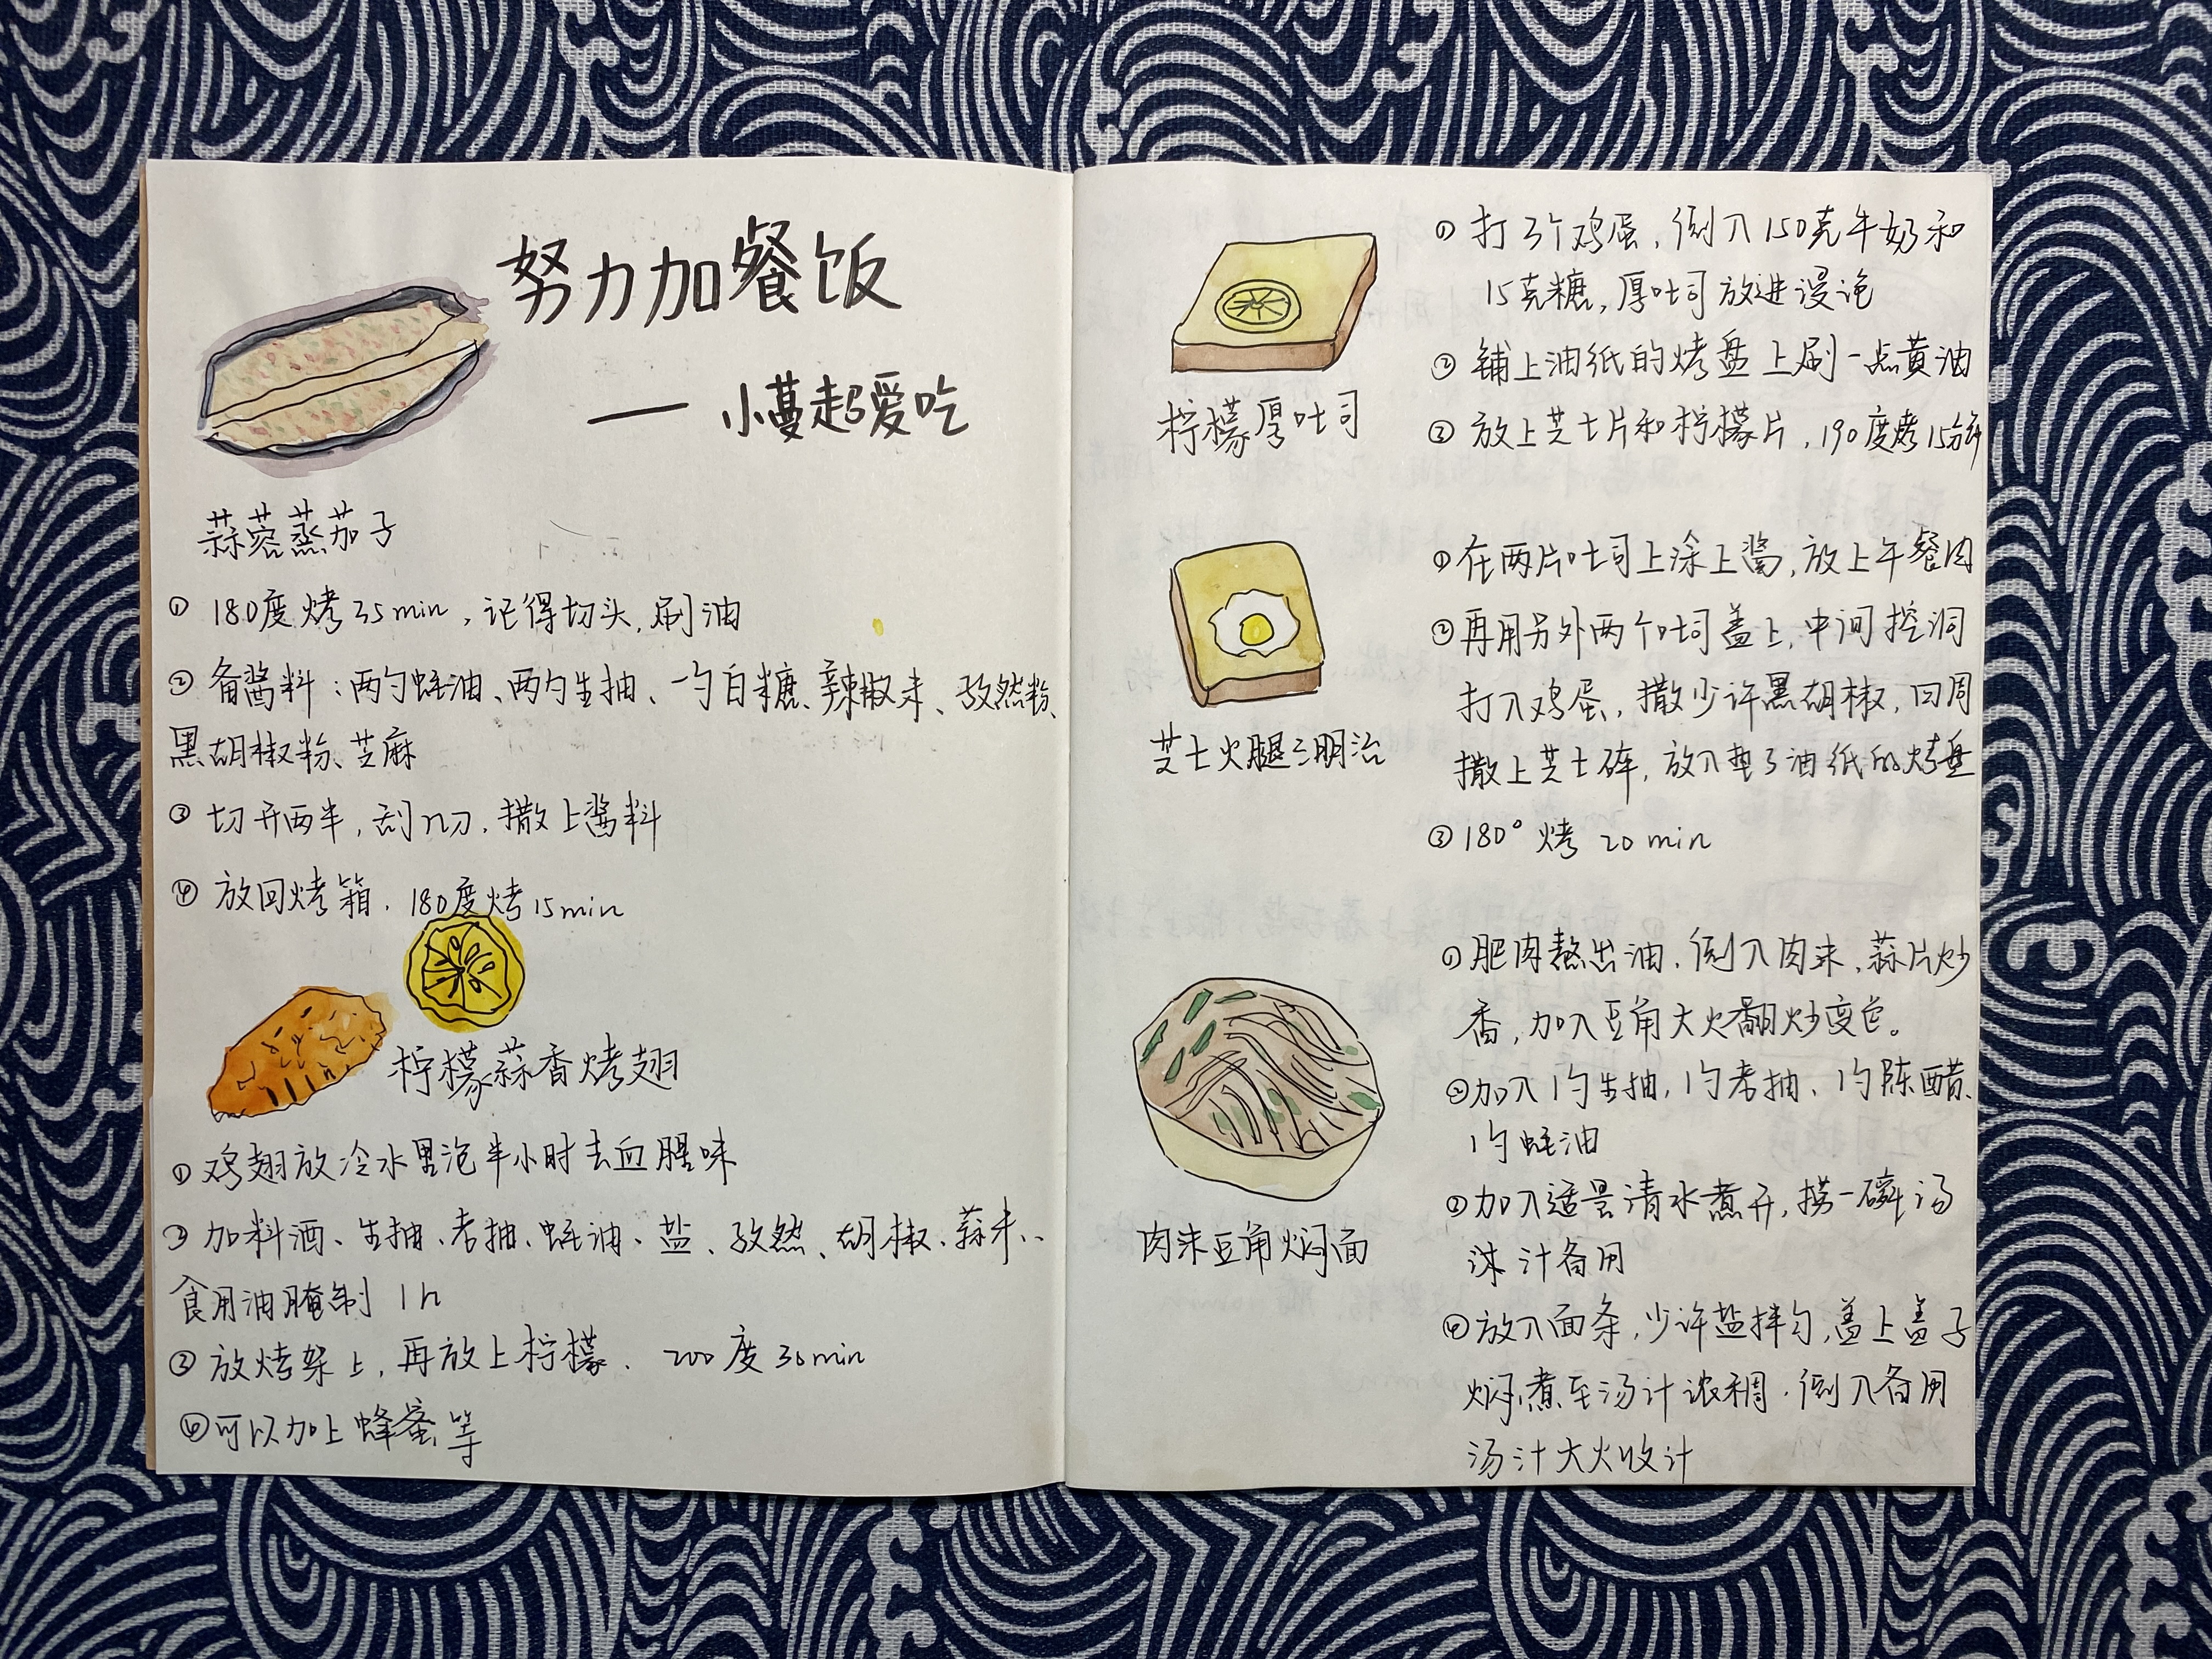 努力加餐饭
—— 小蔓超爱吃
蒜蓉蒸茄子
① 180度烤35min，记得切头，刷油
② 备酱料：两勺蚝油、两勺生抽、一勺白糖、辣椒末、孜然粉、
黑胡椒粉、芝麻
③ 切开两半，刮几刀，撒上酱料
④ 放回烤箱，180度烤15min
柠檬蒜香烤翅
① 鸡翅放冷水里泡半小时去血腥味
② 加料酒、生抽、老抽、蚝油、盐、孜然、胡椒、蒜末、
食用油腌制 1h
③ 放烤架上，再放上柠檬，200度30min
④可以加上蜂蜜等
柠檬厚吐司
① 打3个鸡蛋，倒入150克牛奶和
15克糖，厚吐司放进浸泡
② 铺上油纸的烤盘上刷一点黄油
③ 放上芝士片和柠檬片，190度烤15分钟
芝士火腿三明治
①在两片吐司上涂上酱，放上午餐肉
②再用另外两个吐司盖上，中间挖洞
打入鸡蛋，撒少许黑胡椒，四周
撒上芝士碎，放入垫了油纸的烤盘
③180° 烤 20 min
肉末豆角焖面
①肥肉熬出油，倒入肉末，蒜片炒
香，加入豆角大火翻炒变色。
②加入1勺生抽，1勺老抽、1勺陈醋、
1勺蚝油
③加入适量清水煮开，捞一碗汤
汁备用
④放入面条，少许盐拌匀，盖上盖子
焖煮至汤汁浓稠，倒入备用
汤汁大火收汁